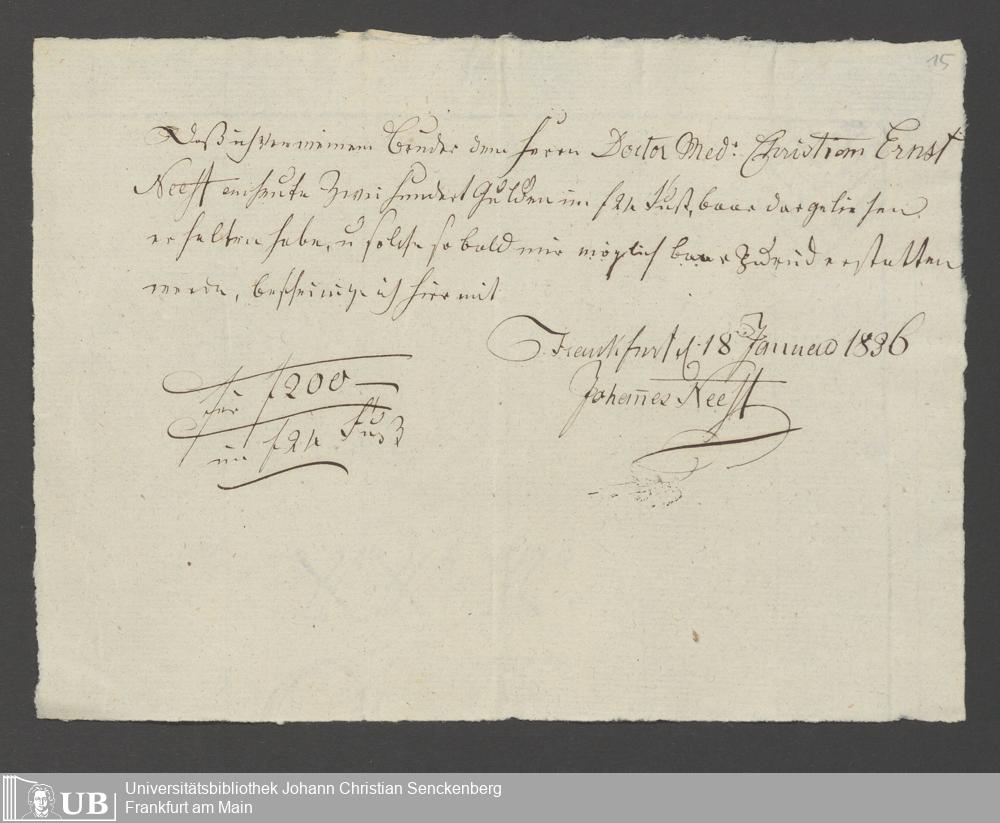 15
Daß ich von meinem Bruder dem Herrn Doctor Med. Christian Ernst
Neeff heute Zwei hundert Gulden im f 24 Fuß, baar dargeliehen
erhalten habe, u solche so bald mir möglich baar zurück erstatten
werde, bescheinige ich hiermit
Frankfurt d. 18 Januar 1836
Johannes Neeff
für f 200 —
im f 24 Fuß
UB
Universitätsbibliothek Johann Christian Senckenberg
Frankfurt am Main